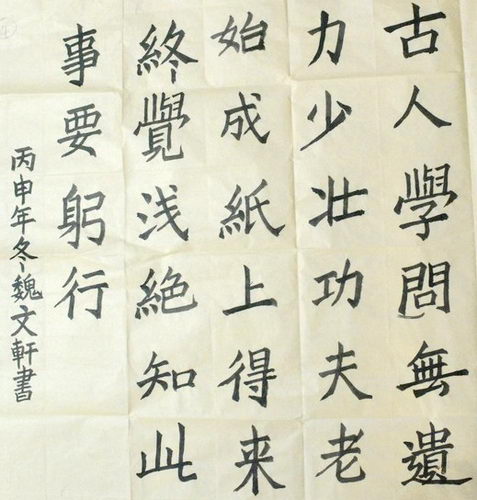 古人學問無遺
力少壮功夫老
始成紙上得来
終覺浅絕知此
事要躬行
丙申年冬魏文軒書